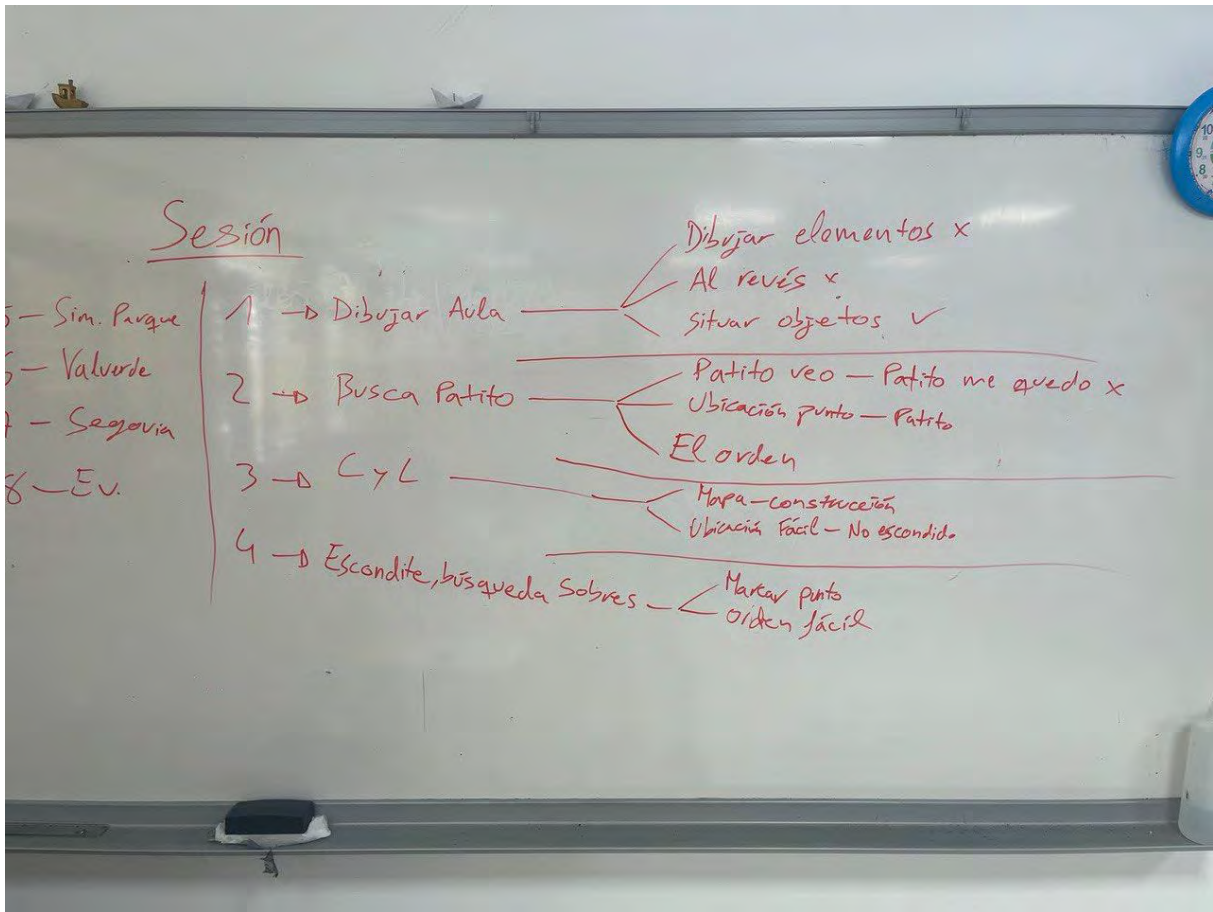 Sesión
5 — Sim. Parque
6 — Valverde
7 — Segovia
8 — Ev.
1 → Dibujar Aula
Dibujar elementos x
Al revés x
Situar objetos ✓
2 → Busca Patito
Patito veo — Patito me quedo x
Ubicación punto — Patito
El orden
3 → C y L
Mapa — construcción
Ubicación Fácil — No escondido
4 → Escondite, búsqueda Sobres
Marcar punto
Orden fácil
10
9
8